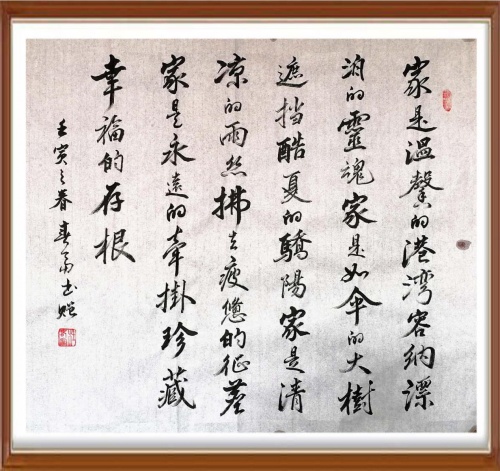 家是溫馨的港灣容納漂
泊的靈魂家是如傘的大樹
遮挡酷夏的驕陽家是清
凉的雨丝拂去疲憊的征塵
家是永遠的牽掛珍藏
幸福的存根
壬寅之春春书赠